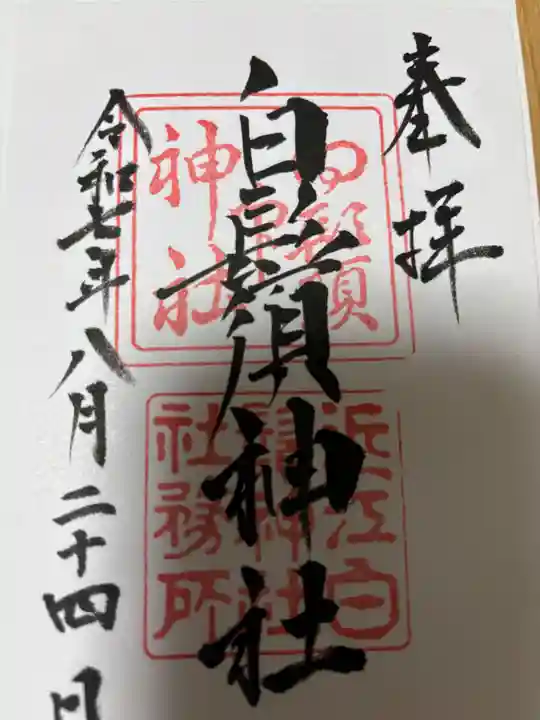 奉拝
白鬚神社
令和七年八月二十四日
白鬚
神社
近江白
鬚神社
社務所